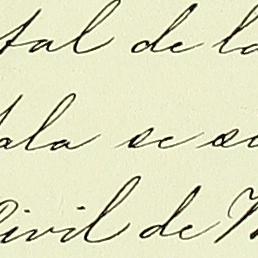 tal de la
ala se se
Civil de M